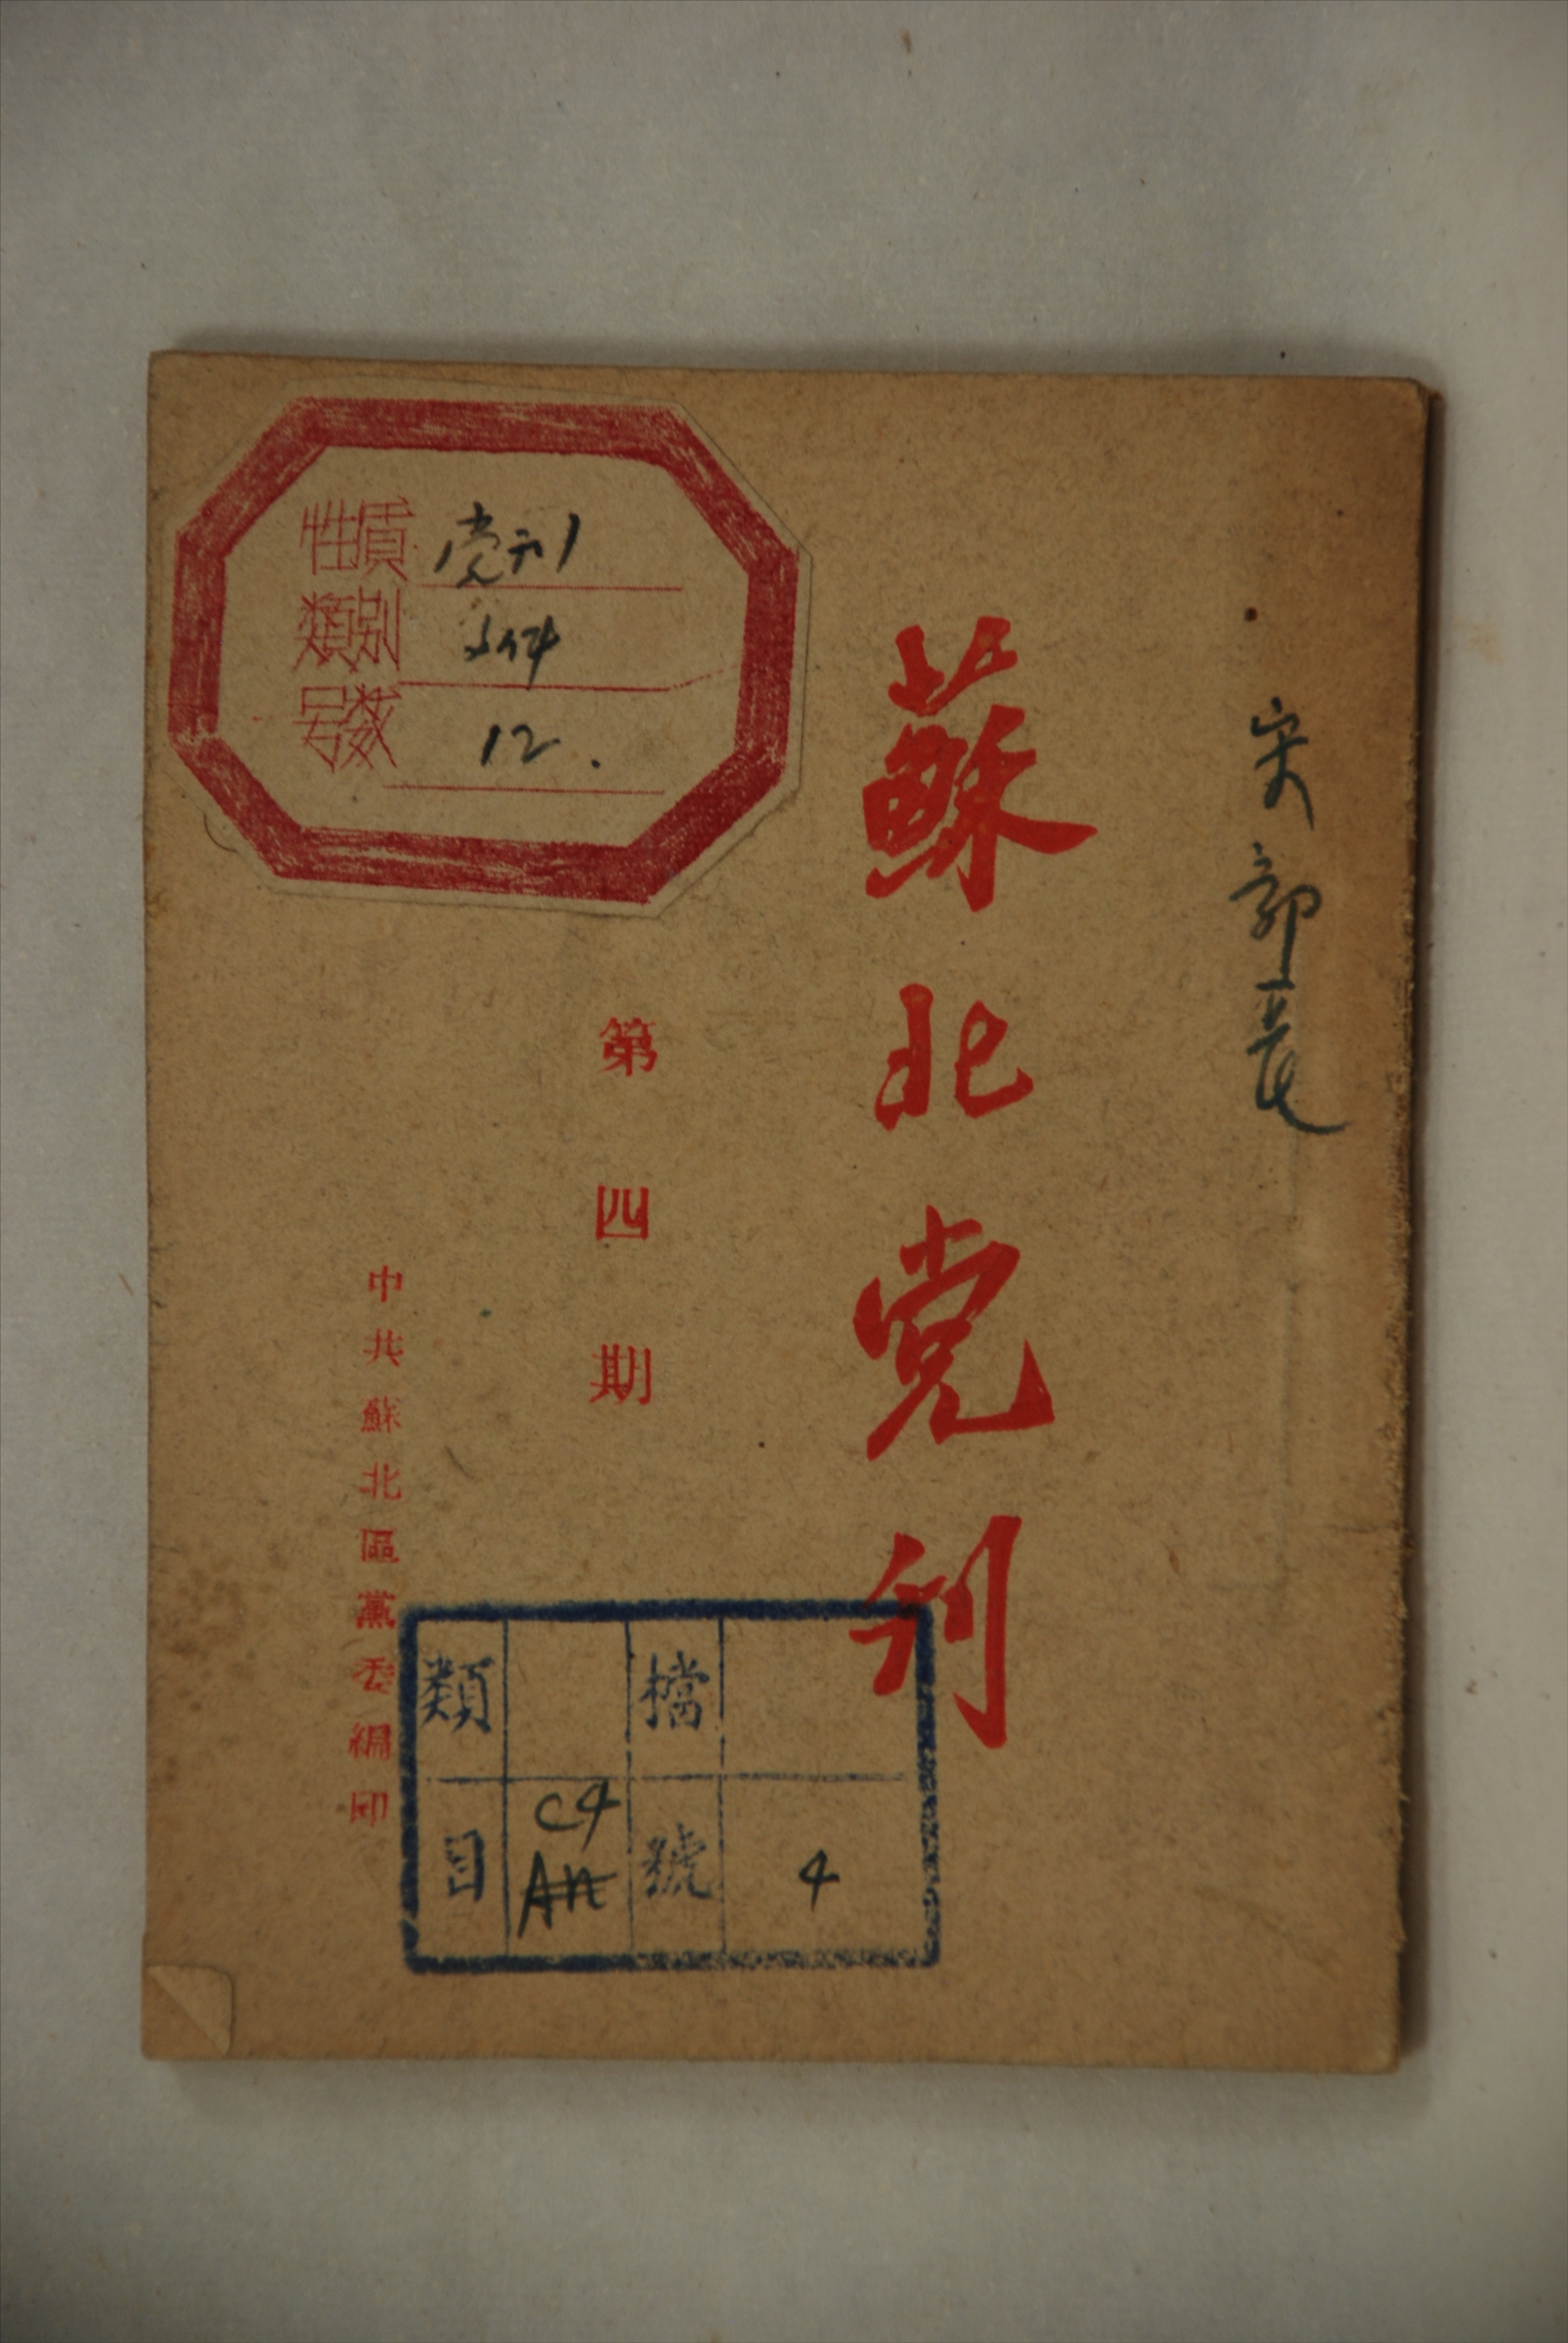 宋部長
蘇北党刊
第四期
中共蘇北區黨委編印
性質 党刊
類別 文件
号数 12.
類目 C4 A11
檔號 4